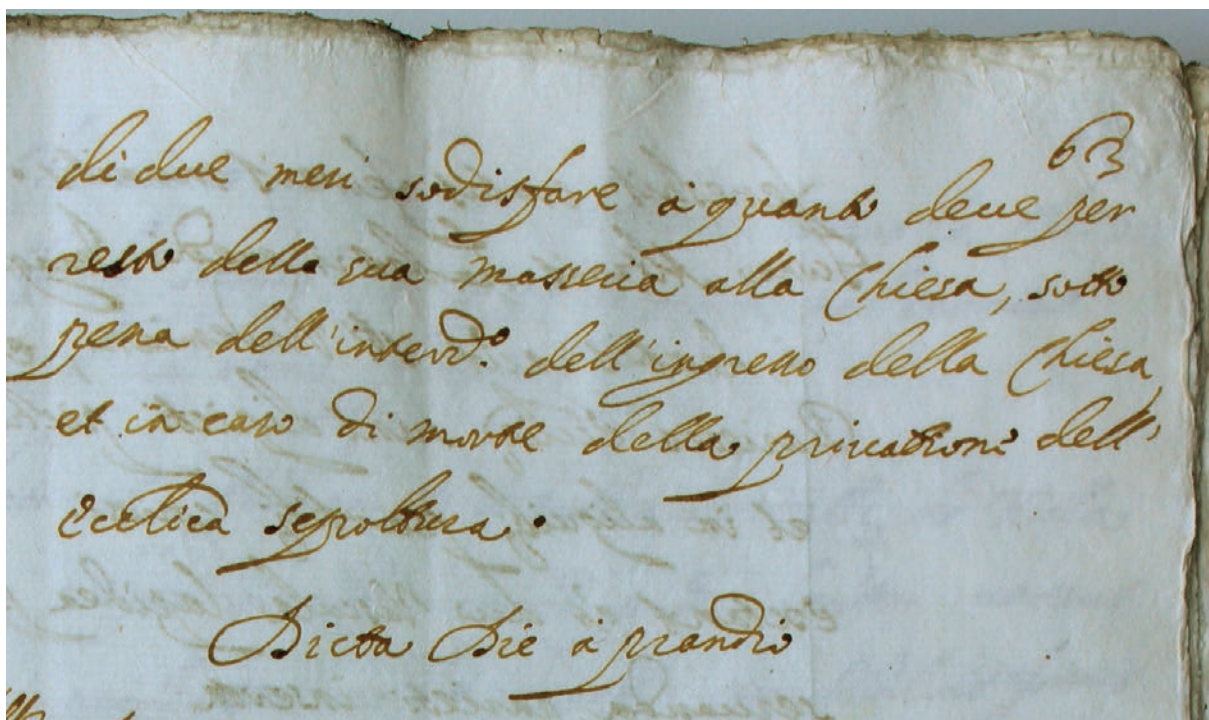 63
di due mesi sodisfare à quanto deue per
resto della sua masseria alla Chiesa, sotto
pena dell'interd.º dell'ingresso della Chiesa,
et in caso di morte della priuatione dell'
Eccl.ica sepoltura.
Dicta Die à prandio